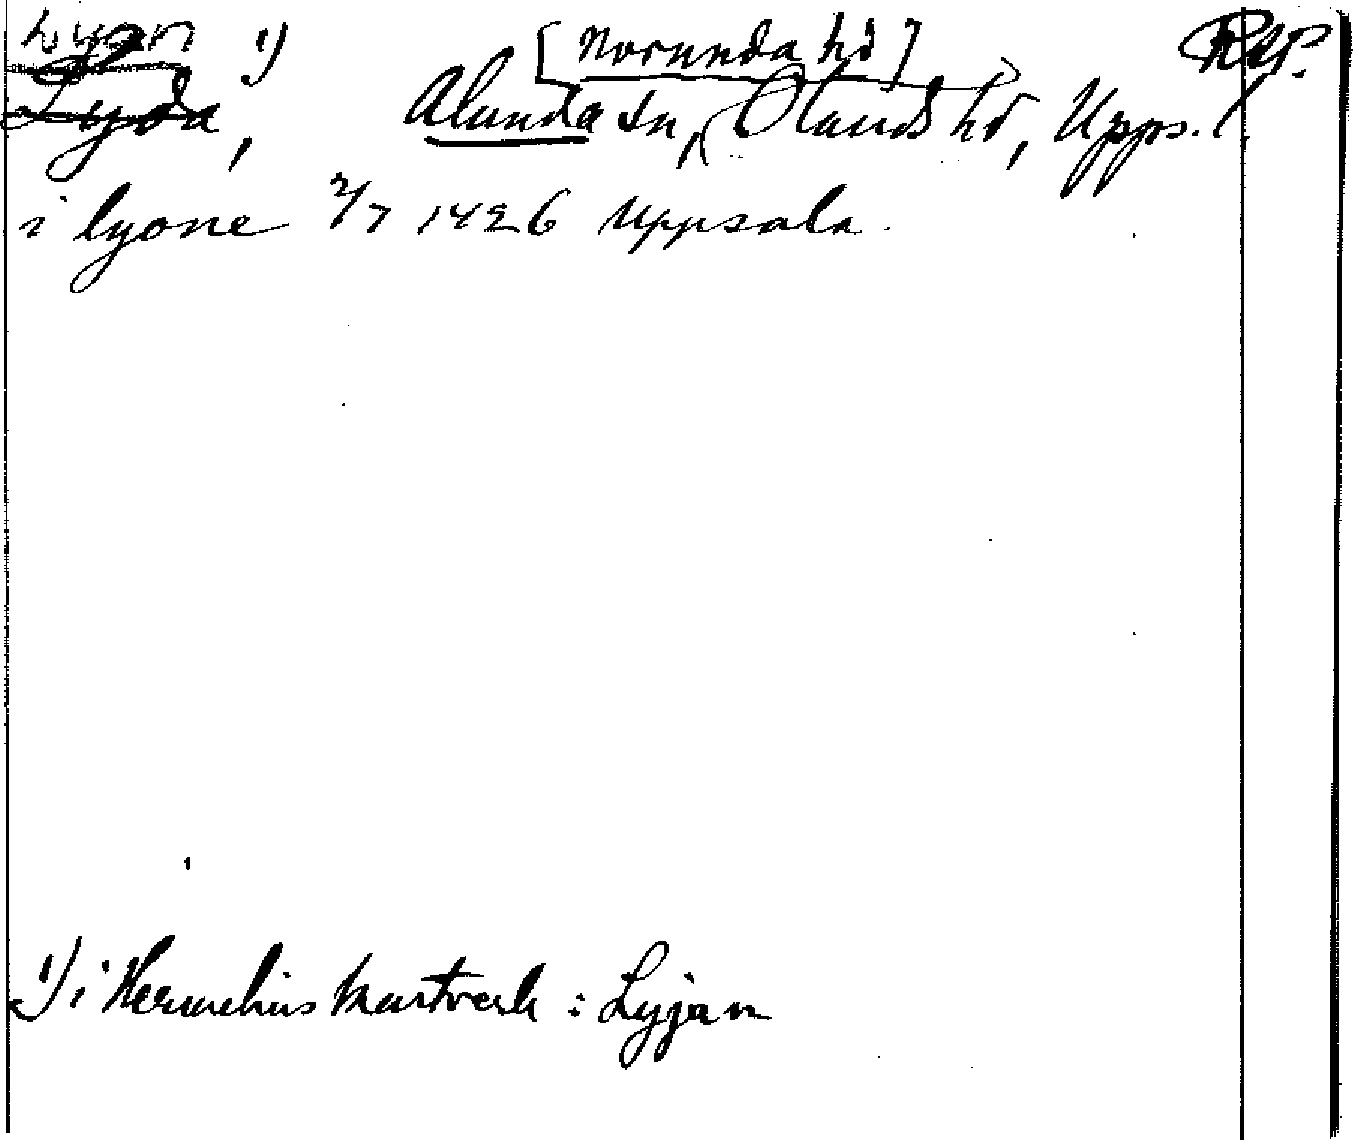 Lyan 1) [Norunda hd] Rap.
Lyda, Alunda sn, Olands hd, Upps. l.
i lyone 2/7 1426 Uppsala.
1) i Hermelins kartverk : Lyjan